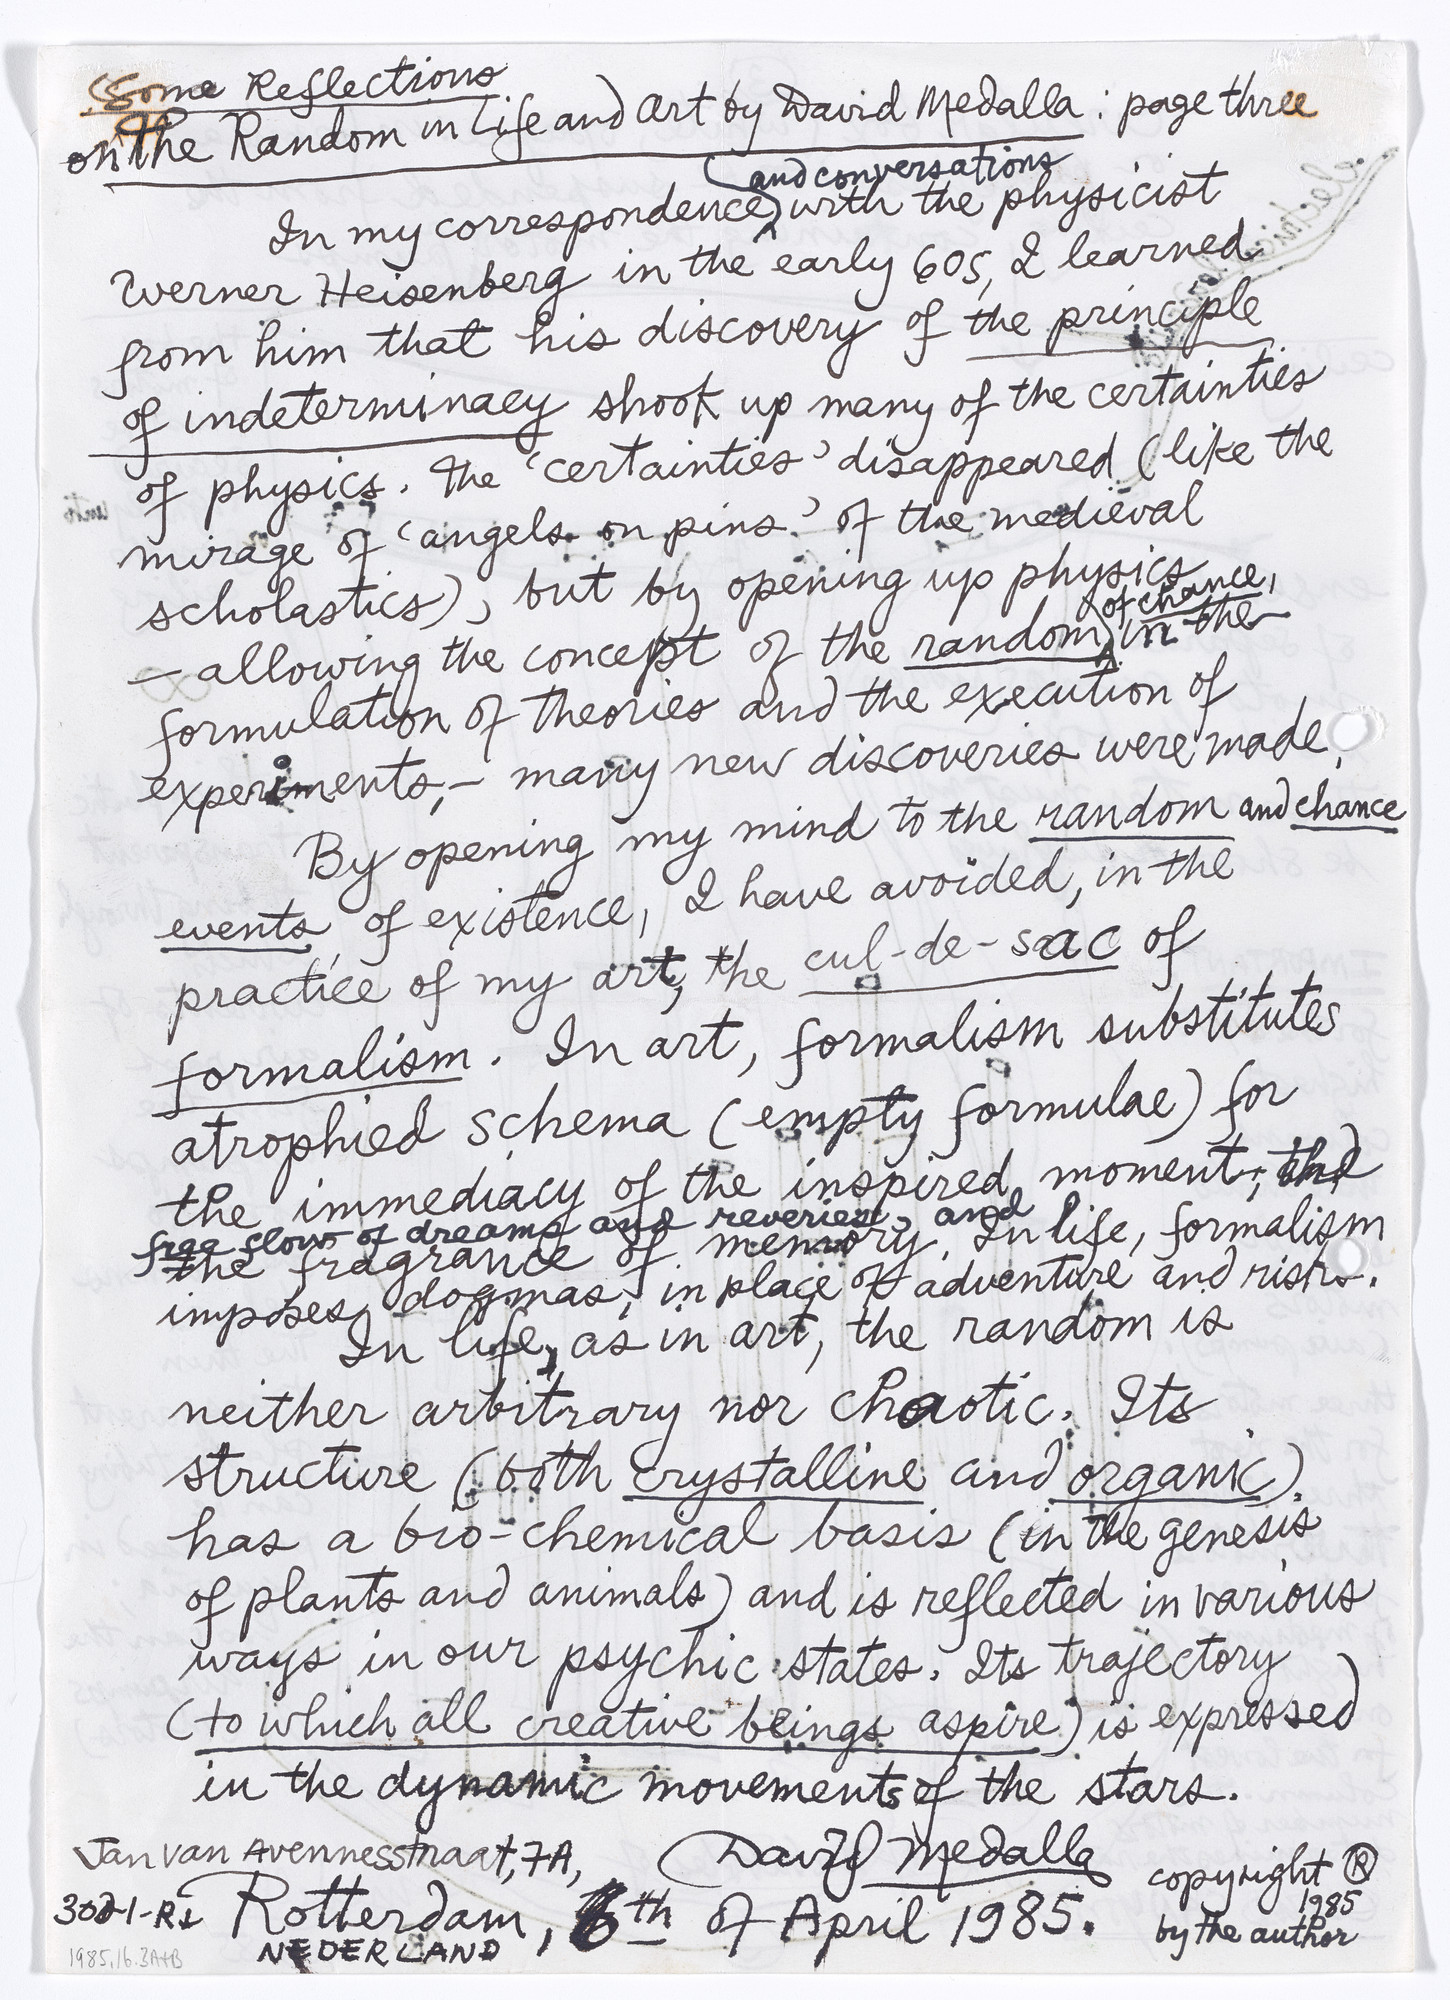 Some Reflections
on the Random in Life and Art by David Medalla : page three
and conversations
In my correspondence, with the physicist
Werner Heisenberg in the early 60s, I learned
from him that his discovery of the principle
of indeterminacy shook up many of the certainties
of physics. The 'certainties' disappeared (like the
mirage of 'angels on pins' of the medieval
scholastics), but by opening up physics
of chance,
— allowing the concept of the random, in the
formulation of theories and the execution of
experiments, — many new discoveries were made.
By opening my mind to the random and chance
events of existence, I have avoided, in the
practice of my art, the cul-de-sac of
formalism. In art, formalism substitutes
atrophied schema (empty formulae) for
the immediacy of the inspired moment, the
free flow of dreams and reveries, and
the fragrance of memory. In life, formalism
imposes dogmas, in place of adventure and risks.
In life, as in art, the random is
neither arbitrary nor chaotic. Its
structure (both crystalline and organic)
has a bio-chemical basis (in the genesis
of plants and animals) and is reflected in various
ways in our psychic states. Its trajectory
(to which all creative beings aspire) is expressed
in the dynamic movements of the stars.
Jan van Avennesstraat, 7A,
David Medalla
Rotterdam, 6th of April 1985.
NEDERLAND
copyright ®
1985
by the author
1985.16.3A+B